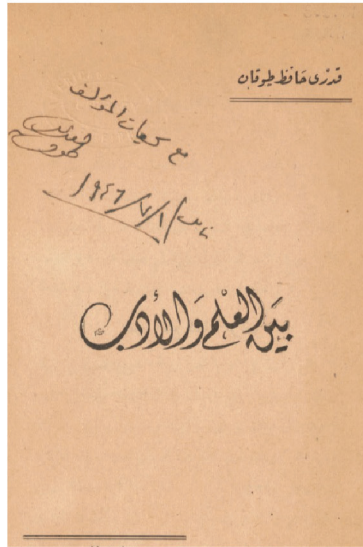 قدرى حافظ طوقان
مع تحيات المؤلف
نابلس ١/٧/١٩٤٦
بين العلم والأدب